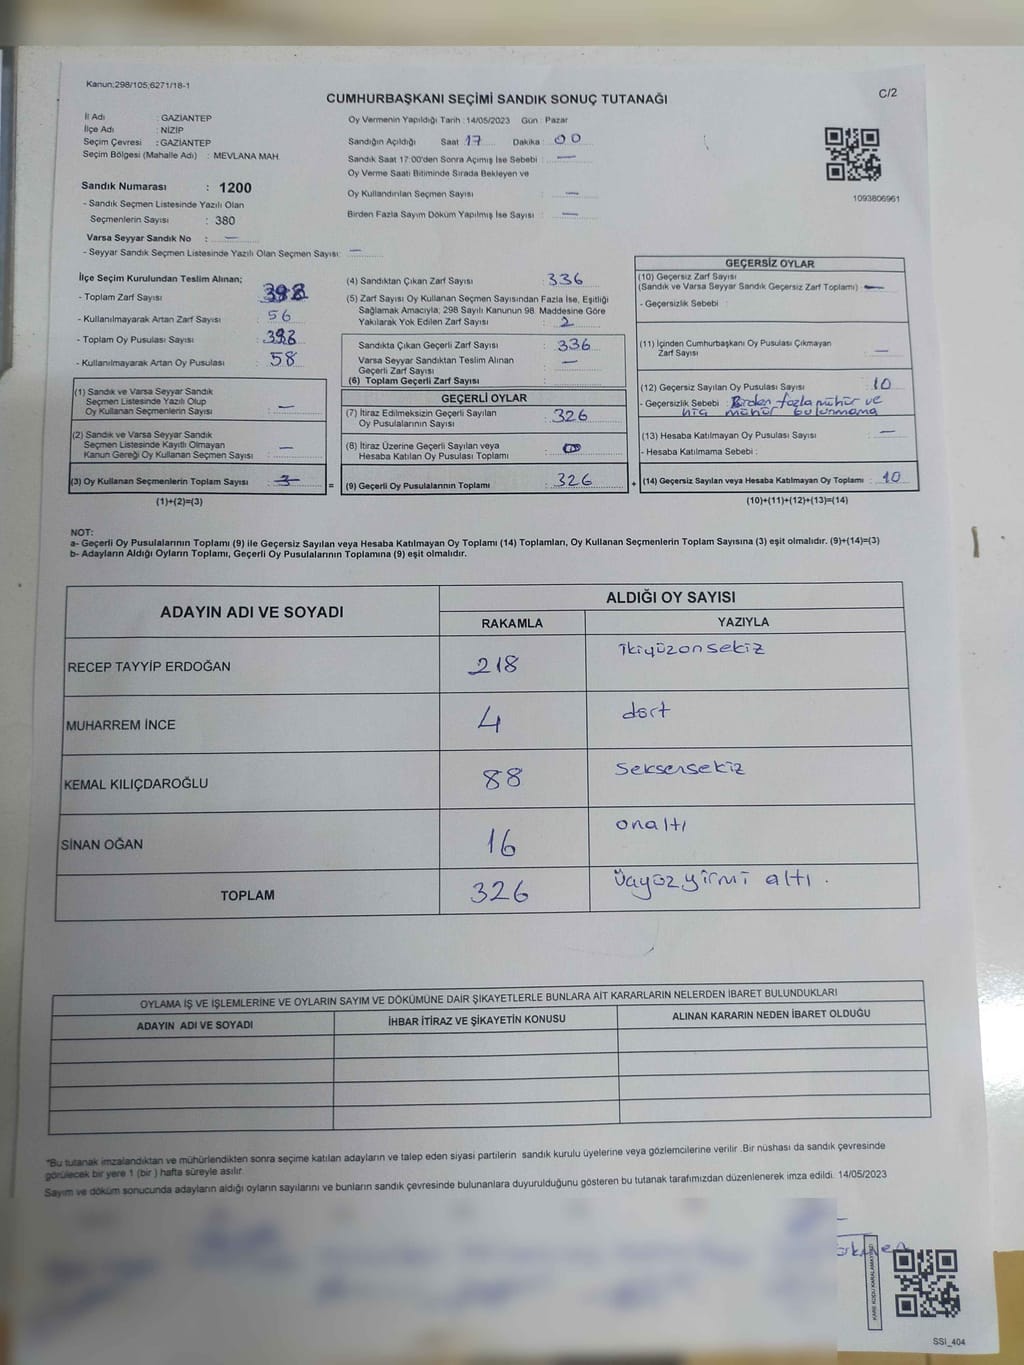 Kanun:298/105,6271/18-1
C/2
CUMHURBAŞKANI SEÇİMİ SANDIK SONUÇ TUTANAĞI
İl Adı : GAZİANTEP
İlçe Adı : NİZİP
Seçim Çevresi : GAZİANTEP
Seçim Bölgesi (Mahalle Adı) : MEVLANA MAH.
Sandık Numarası : 1200
- Sandık Seçmen Listesinde Yazılı Olan
Seçmenlerin Sayısı : 380
Varsa Seyyar Sandık No : —
- Seyyar Sandık Seçmen Listesinde Yazılı Olan Seçmen Sayısı: —
Oy Vermenin Yapıldığı Tarih : 14/05/2023 Gün : Pazar
Sandığın Açıldığı Saat 17 Dakika : 00
Sandık Saat 17:00'den Sonra Açımış İse Sebebi : —
Oy Verme Saati Bitiminde Sırada Bekleyen ve
Oy Kullandırılan Seçmen Sayısı : —
Birden Fazla Sayım Döküm Yapılmış İse Sayısı : —
1093806961
İlçe Seçim Kurulundan Teslim Alınan;
- Toplam Zarf Sayısı :
- Kullanılmayarak Artan Zarf Sayısı : 56
- Toplam Oy Pusulası Sayısı :
- Kullanılmayarak Artan Oy Pusulası : 58
(1) Sandık ve Varsa Seyyar Sandık
Seçmen Listesinde Yazılı Olup
Oy Kullanan Seçmenlerin Sayısı : —
(2) Sandık ve Varsa Seyyar Sandık
Seçmen Listesinde Kayıtlı Olmayan
Kanun Gereği Oy Kullanan Seçmen Sayısı : —
(3) Oy Kullanan Seçmenlerin Toplam Sayısı : =
(1)+(2)=(3)
(4) Sandıktan Çıkan Zarf Sayısı : 336
(5) Zarf Sayısı Oy Kullanan Seçmen Sayısından Fazla İse, Eşitliği
Sağlamak Amacıyla; 298 Sayılı Kanunun 98. Maddesine Göre
Yakılarak Yok Edilen Zarf Sayısı : 2
Sandıkta Çıkan Geçerli Zarf Sayısı : 336
Varsa Seyyar Sandıktan Teslim Alınan
Geçerli Zarf Sayısı : —
(6) Toplam Geçerli Zarf Sayısı :
GEÇERLİ OYLAR
(7) İtiraz Edilmeksizin Geçerli Sayılan
Oy Pusulalarının Sayısı : 326
(8) İtiraz Üzerine Geçerli Sayılan veya
Hesaba Katılan Oy Pusulası Toplamı :
(9) Geçerli Oy Pusulalarının Toplamı : 326 +
GEÇERSİZ OYLAR
(10) Geçersiz Zarf Sayısı
(Sandık ve Varsa Seyyar Sandık Geçersiz Zarf Toplamı) : —
- Geçersizlik Sebebi :
(11) İçinden Cumhurbaşkanı Oy Pusulası Çıkmayan
Zarf Sayısı : —
(12) Geçersiz Sayılan Oy Pusulası Sayısı : 10
- Geçersizlik Sebebi : Birden fazla mühür ve
hiç mühür bulunmama
(13) Hesaba Katılmayan Oy Pusulası Sayısı : —
- Hesaba Katılmama Sebebi :
(14) Geçersiz Sayılan veya Hesaba Katılmayan Oy Toplamı : 10
(10)+(11)+(12)+(13)=(14)
NOT:
a- Geçerli Oy Pusulalarının Toplamı (9) ile Geçersiz Sayılan veya Hesaba Katılmayan Oy Toplamı (14) Toplamları, Oy Kullanan Seçmenlerin Toplam Sayısına (3) eşit olmalıdır. (9)+(14)=(3)
b- Adayların Aldığı Oyların Toplamı, Geçerli Oy Pusulalarının Toplamına (9) eşit olmalıdır.
ADAYIN ADI VE SOYADI
ALDIĞI OY SAYISI
RAKAMLA YAZIYLA
RECEP TAYYİP ERDOĞAN 218 ikiyüzonsekiz
MUHARREM İNCE 4 dört
KEMAL KILIÇDAROĞLU 88 Seksensekiz
SİNAN OĞAN 16 onaltı
TOPLAM 326 Üçyüzyirmi altı.
OYLAMA İŞ VE İŞLEMLERİNE VE OYLARIN SAYIM VE DÖKÜMÜNE DAİR ŞİKAYETLERLE BUNLARA AİT KARARLARIN NELERDEN İBARET BULUNDUKLARI
ADAYIN ADI VE SOYADI İHBAR İTİRAZ VE ŞİKAYETİN KONUSU ALINAN KARARIN NEDEN İBARET OLDUĞU
*Bu tutanak imzalandıktan ve mühürlendikten sonra seçime katılan adayların ve talep eden siyasi partilerin sandık kurulu üyelerine veya gözlemcilerine verilir. Bir nüshası da sandık çevresinde
görülecek bir yere 1 (bir ) hafta süreyle asılır.
Sayım ve döküm sonucunda adayların aldığı oyların sayılarını ve bunların sandık çevresinde bulunanlara duyurulduğunu gösteren bu tutanak tarafımızdan düzenlenerek imza edildi. 14/05/2023
SSİ_404